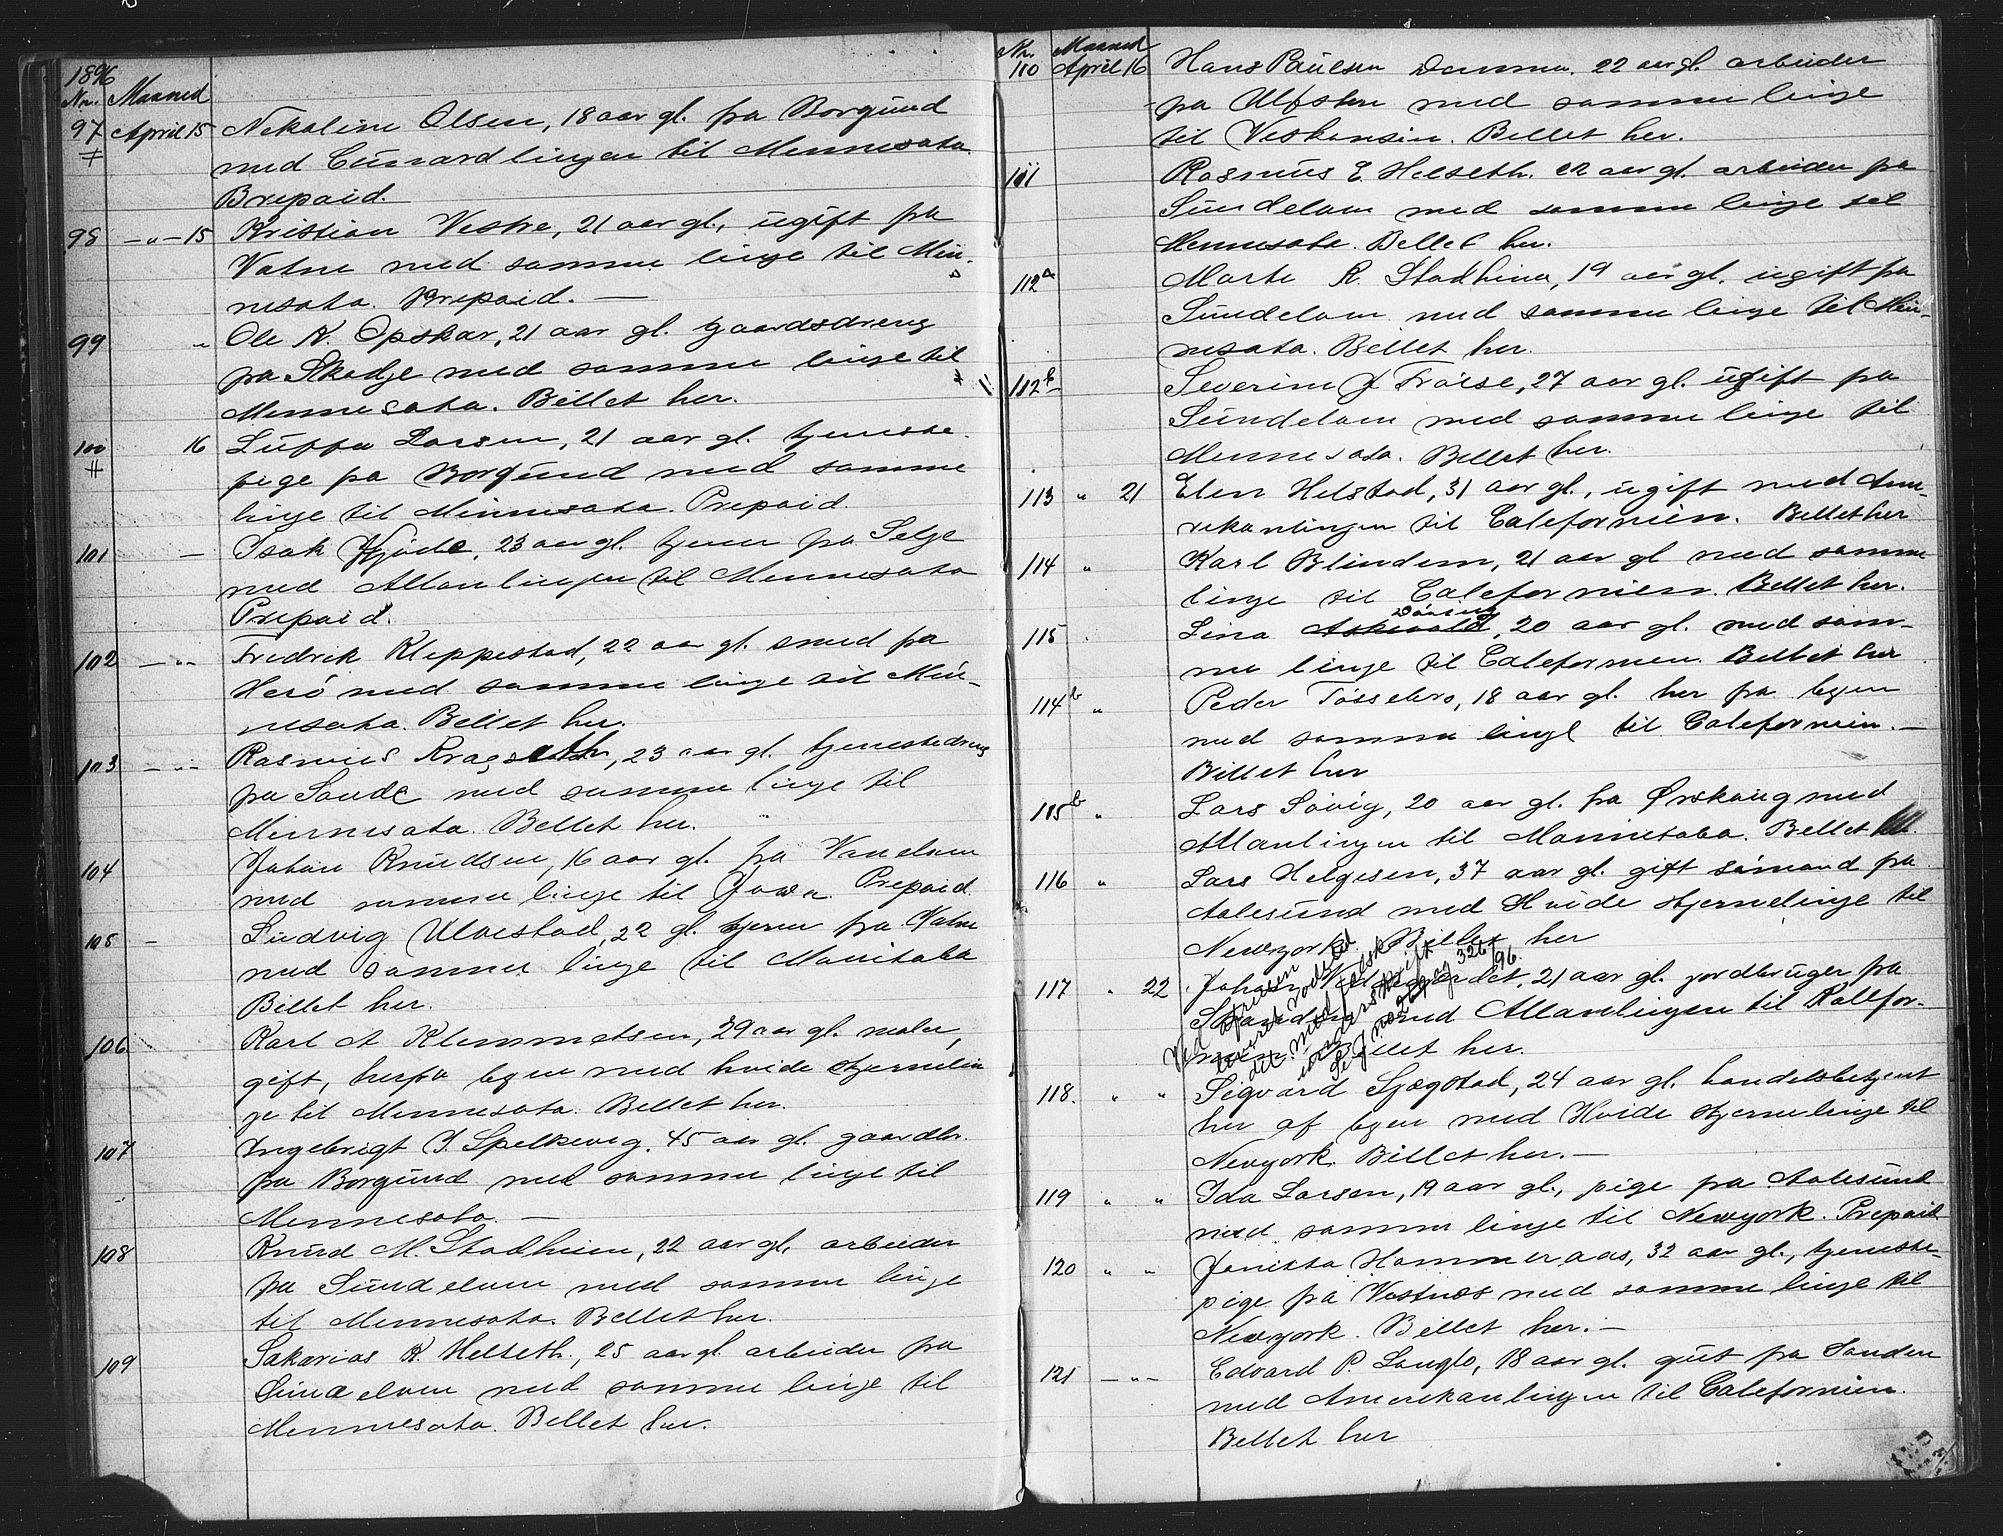 1896
No. Maaned
97 April 15 Nekoline Olsen, 18 aar gl. fra Borgund
med Cunardlinjen til Minnesota
Prepaid.
98 -"- 15 Kristian Vestre, 21 aar gl., ugift fra
Vatne med samme linje til Min-
nesota. Prepaid. —
99 " Ole K. Opskar, 21 aar gl. gaardsdreng
fra Skodje med samme linje til
Minnesota. Billet her.
100 16 Larsen, 21 aar gl. tjeneste-
pige fra Borgund med samme
linje til Minnesota. Prepaid.
101 — Isak 23 aar gl. tjener fra Selje
med Allanlinjen til Minnesota
Prepaid.
102 -"- Fredrik Kleppestad, 22 aar gl. smed fra
Herö med samme linje til Min-
nesota. Billet her.
103 -"- Rasmus Kragseth, 23 aar gl. tjenestedreng
fra Sande med samme linje til
Minnesota. Billet her.
104 Johan Knudsen, 16 aar gl. fra Vanelven
med samme linje til Jowa Prepaid.
105 — Ludvig Ulvestad, 22 gl. tjener fra Vatne
med samme linje til Manitoba
Billet her.
106 Karl A Klemmetsen, 29 aar gl. maler,
gift, herfra byen med hvide stjernelin
je til Minnesota. Billet her.
107 Ingebrigt I. Spelkevig. 45 aar gl. gaardbr.
fra Borgund med samme linje til
Minnesota. —
108 Knud M. Stadheim, 22 aar gl. arbeider
fra Sundelven med samme linje
til Minnesota. Billet her.
109 Sakarias K. Helseth, 25 aar gl. arbeider fra
Sundelven med samme linje til
Minnesota. Billet her.
No. Maaned
110 April 16 Hans Paulsen 22 aar gl. arbeider
fra Ulfsten med samme linje
til Viskonsin. Billet her.
111 Rasmus E. Helseth. 22 aar gl. arbeider fra
Sundelven med samme linje til
Minnesota. Billet her.
112a Marte R. Stadheim, 19 aar gl. ugift fra
Sundelven med samme linje til Min-
nesota. Billet her.
112b Severine J 27 aar gl. ugift fra
Sundelven med samme linje til
Minnesota. Billet her.
113 " 21 Elen Helstad, 31 aar gl., ugift med Ame-
rikanlinjen til Calefornien. Billet her
114 " Karl Blindem, 21 aar gl med samme
linje til Calefornien. Billet her.
115 " Lina Askevold, 20 aar gl. med sam-
me linje til Calefornien. Billet her
114b " Peder Tössebro, 18 aar gl. her fra byen
med samme linje til Calefornien. —
Billet her
115b " Lars Sövig, 20 aar gl. fra Ørskoug med
Allanlinjen til Mannitoba. Billet
116 " Lars Helgesen, 37 aar gl. gift sömand fra
Aalesund med Hvide stjernelinje til
Newyork. Billet her
117 " 22 Johan 21 aar gl. jordbruger fra
med Allanlinjen til Kallfor-
nien Billet her.
118. " " Sigvard Sjøgstad, 24 aar gl. handelsbetjent
her af byen med Hvide Stjernelinje til
Newyork. Billet her. —
119 " " Ida Larsen, 19 aar gl., pige fra Aalesund
med samme linje til Newyork. Prepaid
120 " " Jonetta Hammeraas, 32 aar gl., tjeneste-
pige fra Vestnæs med samme linje til
Newyork. Billet her. —
121 -"- Edvard P. Langlo, 18 aar gl. gut fra Sanden
med Amerikanlinjen til Calefornien.
Billet her